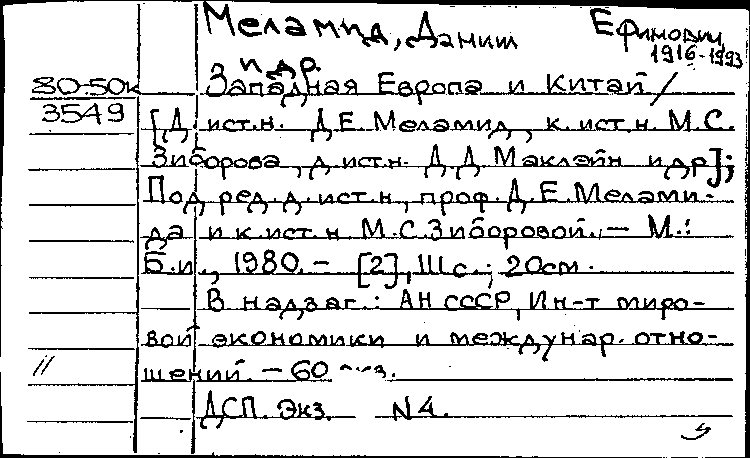 Меламид, Даниил Ефимович
1916-1993
и др.
80-50к Западная Европа и Китай /
3549 [Д. ист. н. Д.Е. Меламид, к. ист. н. М.С.
Зиборова, д. ист. н. Д.Д. Маклэйн и др];
Под ред. д. ист. н., проф. Д.Е. Мелами-
да и к. ист. н М.С. Зиборовой. – М.:
Б.и., 1980. – [2], 111 с.; 20 см.
В надзаг.: АН СССР, Ин-т миро-
вой экономики и междунар. отно-
шений. – 60 экз.
ДСП. Экз. N 4.